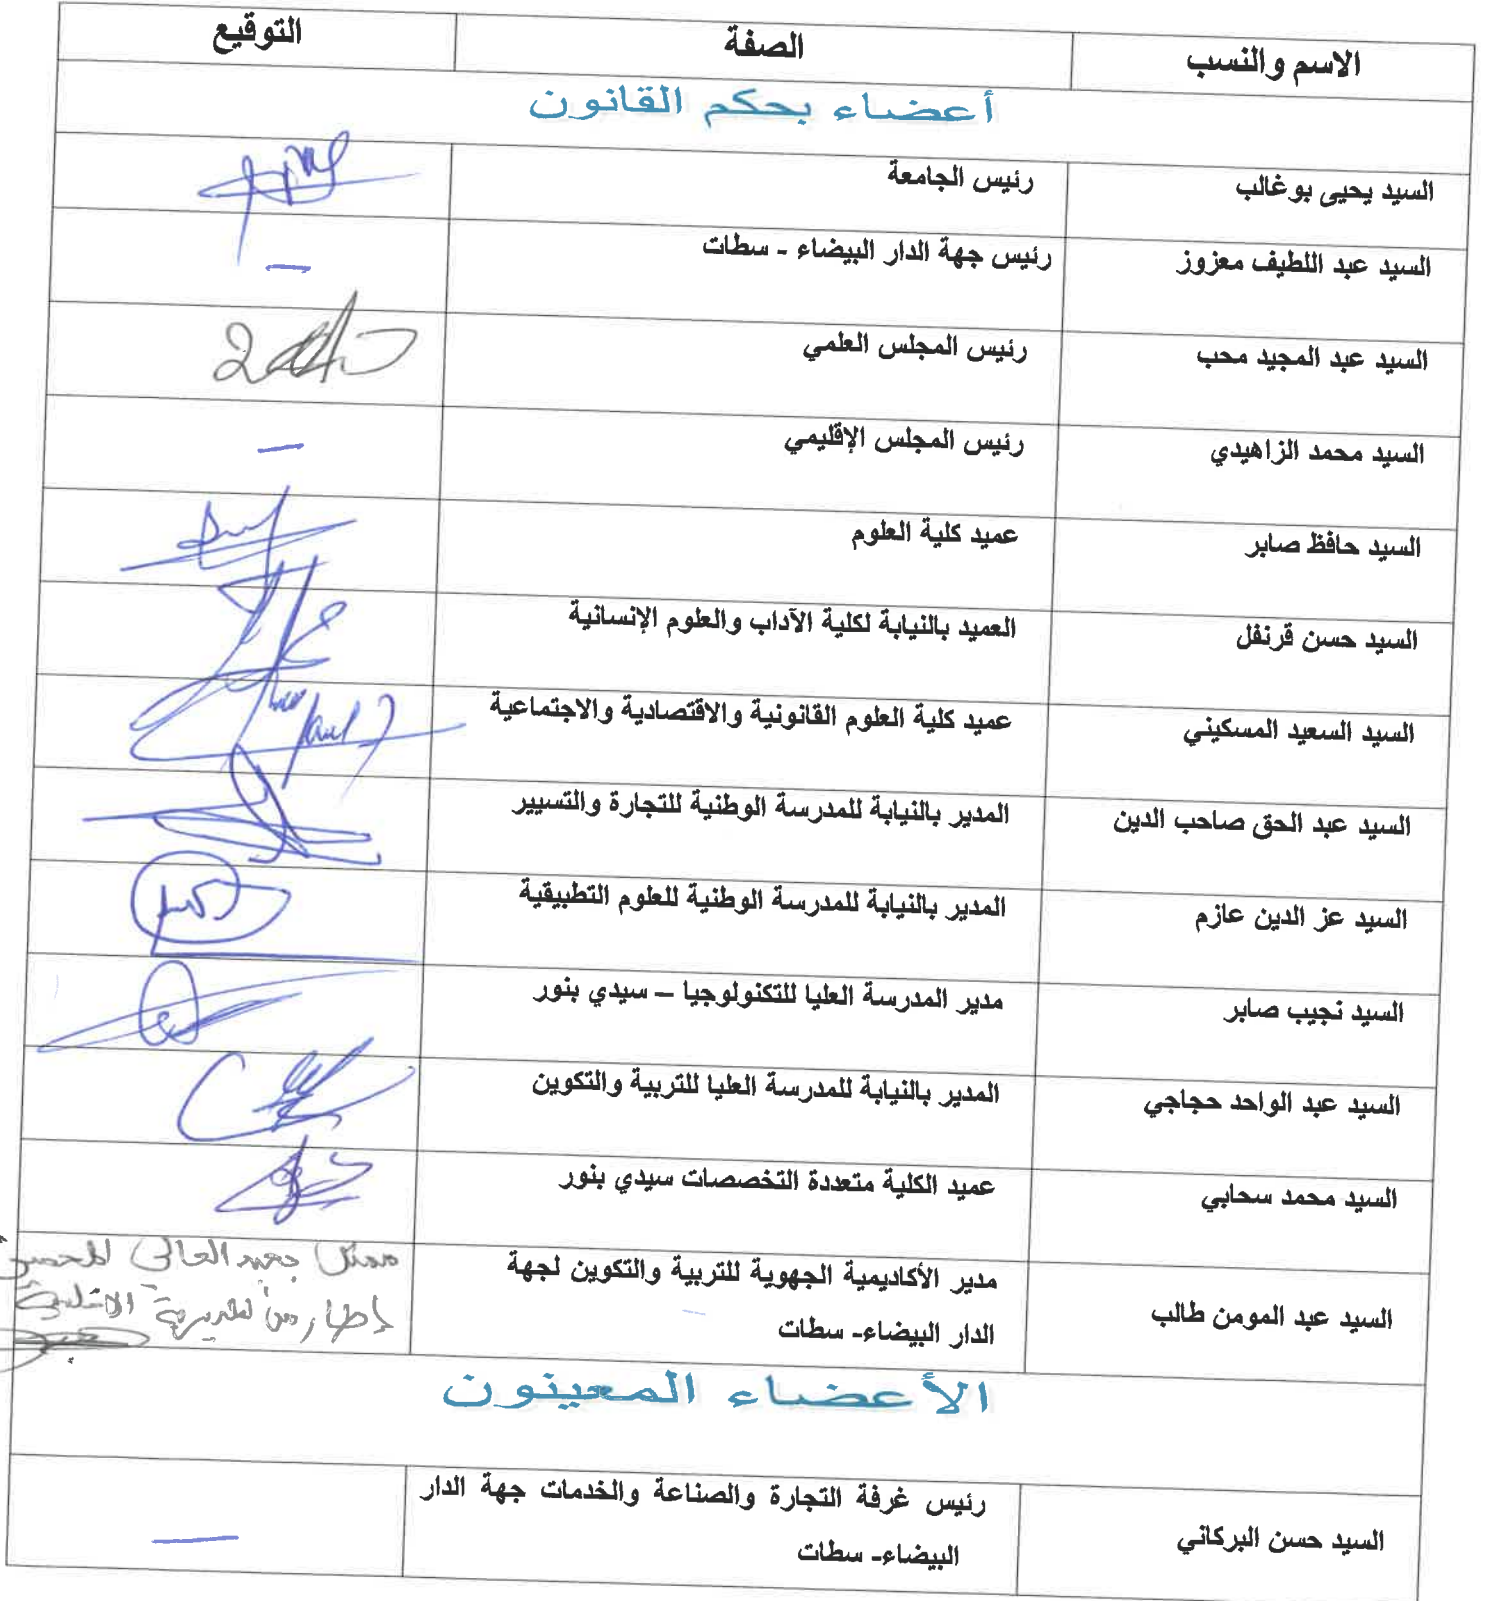 الاسم والنسب الصفة التوقيع
أعضاء بحكم القانون
السيد يحيى بوغالب رئيس الجامعة
السيد عبد اللطيف معزوز رئيس جهة الدار البيضاء - سطات
السيد عبد المجيد محب رئيس المجلس العلمي
السيد محمد الزاهيدي رئيس المجلس الإقليمي
السيد حافظ صابر عميد كلية العلوم
السيد حسن قرنفل العميد بالنيابة لكلية الآداب والعلوم الإنسانية
السيد السعيد المسكيني عميد كلية العلوم القانونية والاقتصادية والاجتماعية
السيد عبد الحق صاحب الدين المدير بالنيابة للمدرسة الوطنية للتجارة والتسيير
السيد عز الدين عازم المدير بالنيابة للمدرسة الوطنية للعلوم التطبيقية
السيد نجيب صابر مدير المدرسة العليا للتكنولوجيا – سيدي بنور
السيد عبد الواحد حجاجي المدير بالنيابة للمدرسة العليا للتربية والتكوين
السيد محمد سحابي عميد الكلية متعددة التخصصات سيدي بنور
السيد عبد المومن طالب مدير الأكاديمية الجهوية للتربية والتكوين لجهة
الدار البيضاء- سطات
الأعضاء المعينون
السيد حسن البركاني رئيس غرفة التجارة والصناعة والخدمات جهة الدار
البيضاء- سطات